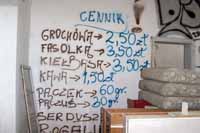 CENNIK
GROCHÓWA → 2,50zł
FASOLKA → 3,50zł
KIEŁBASA → 3,50zł
KAWA → 1,50zł
PĄCZEK → 60gr.
30gr.
SERDUSZ
ROGALI